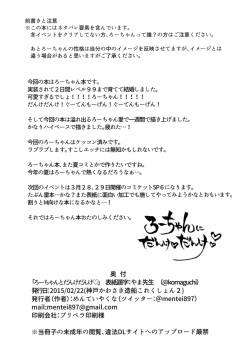 前書きと注意
※この本にはネタバレ要素を含んでいます。
冬イベントをクリアしてない方、ろーちゃんって誰？の方はご注意ください。
あとろーちゃんの性格は自分の中のイメージを反映させてますが、イメージとは
違う場合があると思いますがご了承ください。
今回の本はろーちゃん本です。
実装されて２日間レベル９９まで育てて結婚しました。
可愛すぎるでしょ！！！！ろーちゃん！！！！！
だんけだんけ！ぐーてんもーげん！ぐーてんもーげん！
そして今回の本は溢れ出るろーちゃん愛で一週間で描き上げました。
かなりハイペースで描きました。疲れた…！
今回のろーちゃんはケッコン済みです。
ラブラブします。すこしエッチには無知かもしれないです。
ろーちゃん本、また夏コミとかで作りたいですね。
今年の夏はろーちゃんで熱くなるだろうなぁー。
次回のイベントは３月２８、２９日開催のコミケットSP６になります。
たぶん響本…かな？また表紙に面白い加工でも施してやってみようかなとおもいます。
割りとM向けな本になるかなと…！
それではろーちゃん本おたのしみください。
ろーちゃんに
だんけ♡だんけ♡
奥 付
「ろーちゃんとだんけだんけ♡」 表紙題字:やま先生 (@komaguchi)
発行日：2015/02/22（神戸かわさき造船これくしょん２）
発行者（作者）：めんていやくな（ツイッター：@mentei897）
mentei897@gmail.com
印刷会社：プリペラ印刷様
※当冊子の未成年の閲覧、違法DLサイトへのアップロード厳禁